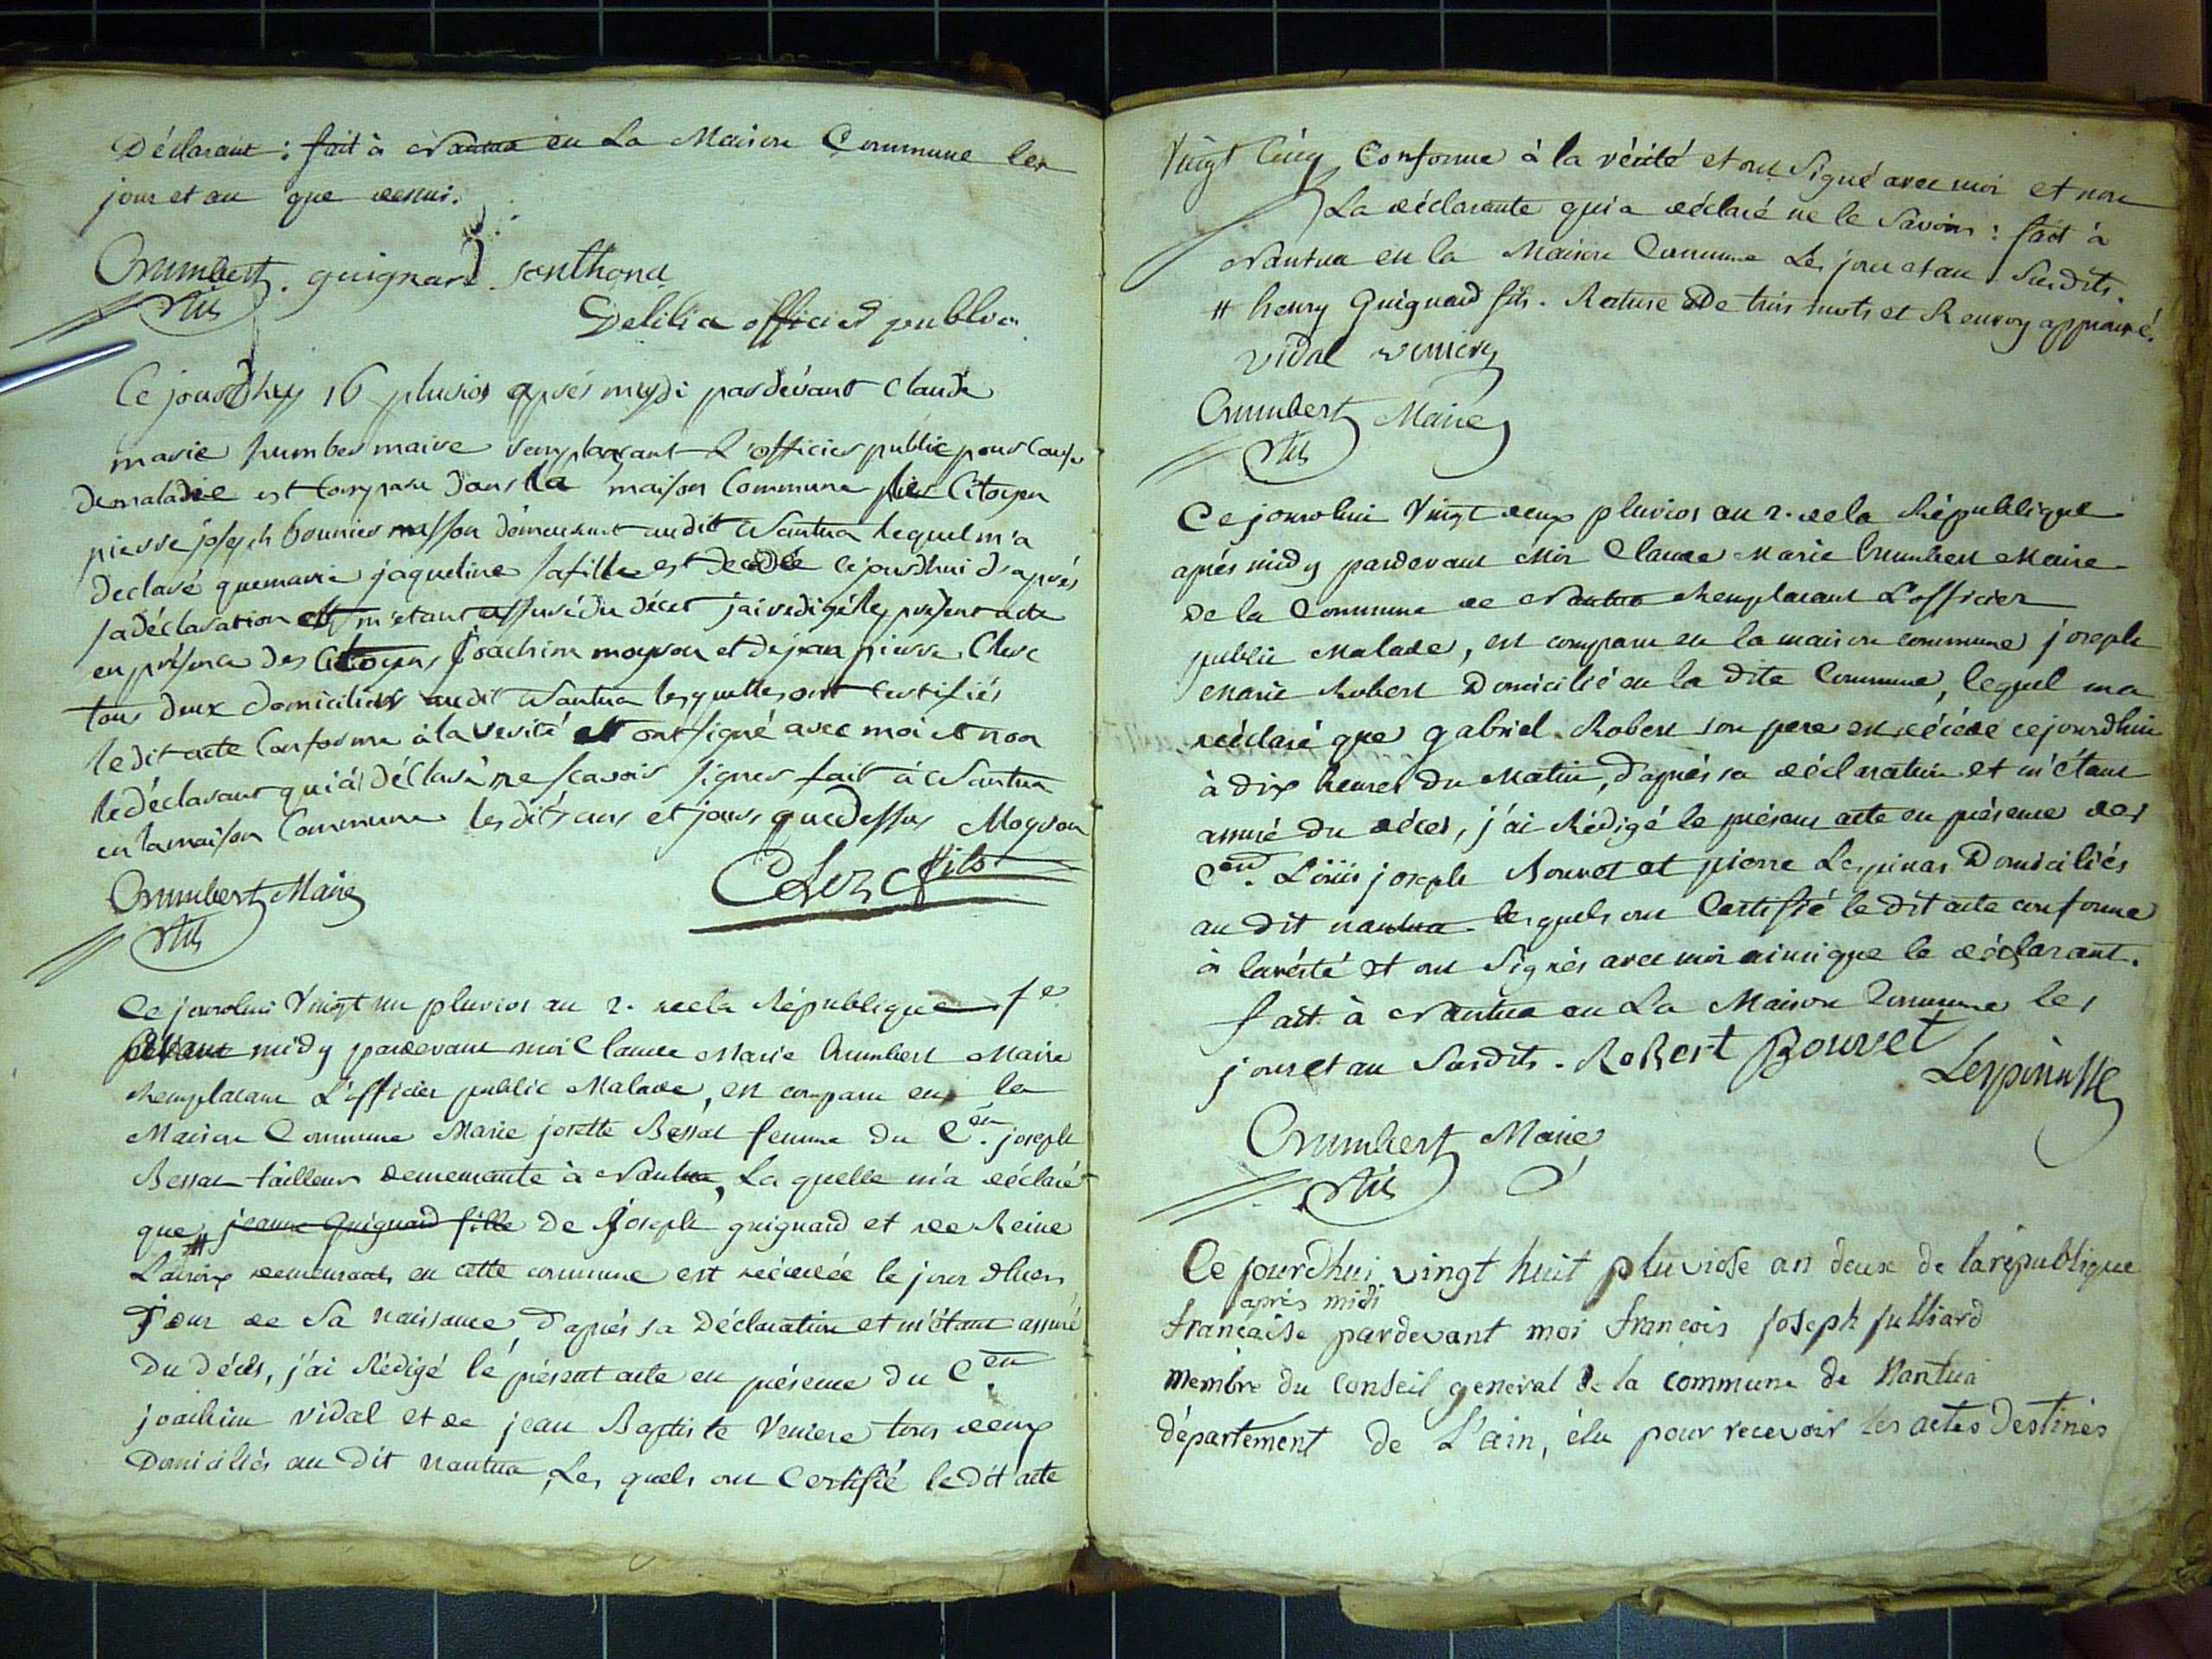 Déclarant : fait à Nantua en La Maison Commune les
jour et an que dessus.
Chumbert . guignard . senthona
Delilia officier public
Ce jourdhuy 16 pluvios après mydi pardevant Claude
marie humber maire remplaçant L'officier public pour cause
de maladie est comparu dans la maison Commune le Citoyen
pierre joseph bounier masson demeurant audit Nantua lequel m'a
declaré que marie jaqueline sa fille est decedée cejourdhui d'après
sa déclaration et m'etant assuré du décet j'ai redigé le présent acte
en présence des Citoyens joachim moyron et de jean pierre Clerc
tous deux domiciliés audit Nantua lesquelles ont certifiés
ledit acte Conforme à la verité et ont signé avec moi et non
le déclarant qui à déclaré ne scavoir signer fait à Nantua
en la maison Commune lesdits ans et jours que dessus Moyron
Chumbert Maire
Clerc fils
Ce jourdhui Vingt un pluvios an 2. de la République fse
midy pardevant moi Claude Marie Chumbert Maire
Remplacant L'officier public Malade, est comparu en la
Maison Commune Marie josette Bessat femme du Cen. joseph
Bessat tailleur demeurante à Nantua, La quelle m'a déclaré
que # jeanne Guignard fille De Joseph guignard et de Reine
demeurants en cette commune est décédée le jour dhier,
jour de Sa naissance, d'après sa Déclaration et m'étant assuré
Du Décès, j'ai Rédigé le présent acte en présence du Cen.
joachim vidal et de jean Baptiste Veniere tous deux
Domiciliés au dit Nantua, Les quels ont Certifié le dit acte
Vingt Cinq Conforme à la vérité et ont Signé avec moi et non
La déclarante qui a déclaré ne le Savoir : fait à
Nantua en la Maison Commune Les jour et an Susdits.
# henry Guignard fils. Rature De trois mots et Renvoy approuvé.
vidal veniere
Chumbert Maire
Ce jourdhui Vingt deux pluvios an 2. de la République
après midy pardevant Moi Claude Marie Chumbert Maire
De la Commune de Nantua Remplacant L'officier
public Malade, est comparu en la maison commune joseph
Marie Robert Domicilié en la dite Commune, lequel ma
déclaré que gabriel Robert son pere est décédé cejourdhui
à dix heures du Matin, d'après sa déclaration et m'étant
assuré du décès, j'ai Rédigé le présent acte en présence des
Cen. Loüis joseph Bouvet et pierre Lespinas Domiciliés
au dit nantua lesquels ont Certifié le dit acte conforme
à la vérité et ont Signés avec moi ainsi que le déclarant.
fait à Nantua en La Maison Commune les
jour et an Susdits. RoBert Bouvet Lespinasse
Chumbert Maire
Ce jourdhui vingt huit pluviose an deux de la république
après midi
française pardevant moi françois joseph julliard
membre du conseil general de la commune de Nantua
département de L'ain, élu pour recevoir les actes destinés